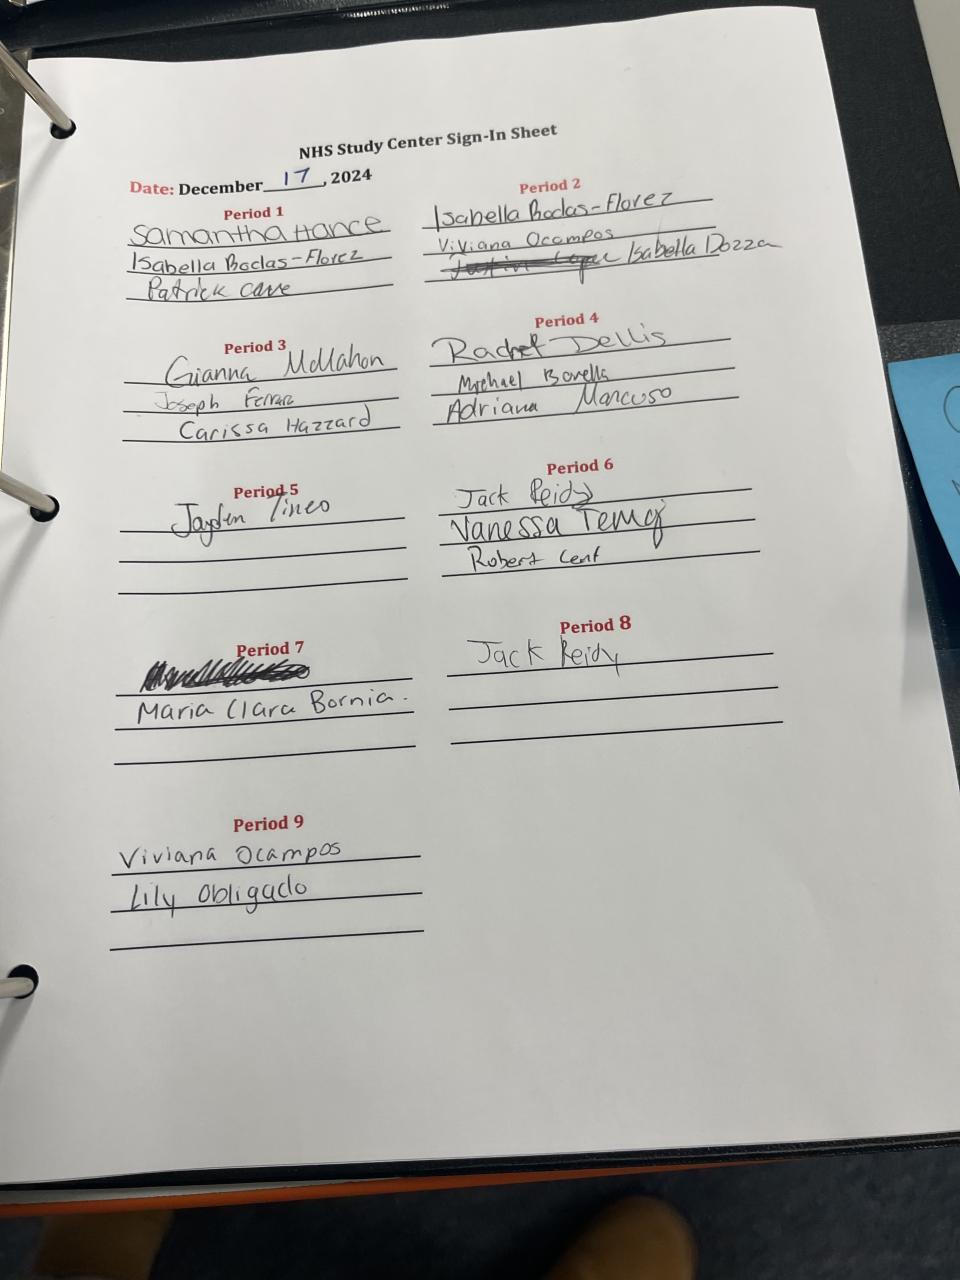 NHS Study Center Sign-In Sheet
Date: December 17, 2024
Period 1
Samantha Hance
Isabella Bodas-Florez
Patrick Cave
Period 2
Isabella Bodas-Florez
Viviana Ocampos
Isabella Dozza
Period 3
Gianna McMahon
Joseph Ferrara
Carissa Hazzard
Period 4
Rachel Dellis
Michael Bovella
Adriana Mancuso
Period 5
Jayden Tineo
Period 6
Jack Reidy
Vanessa
Robert Cent
Period 7
Maria Clara Bornia.
Period 8
Jack Reidy
Period 9
Viviana Ocampos
Lily Obligado